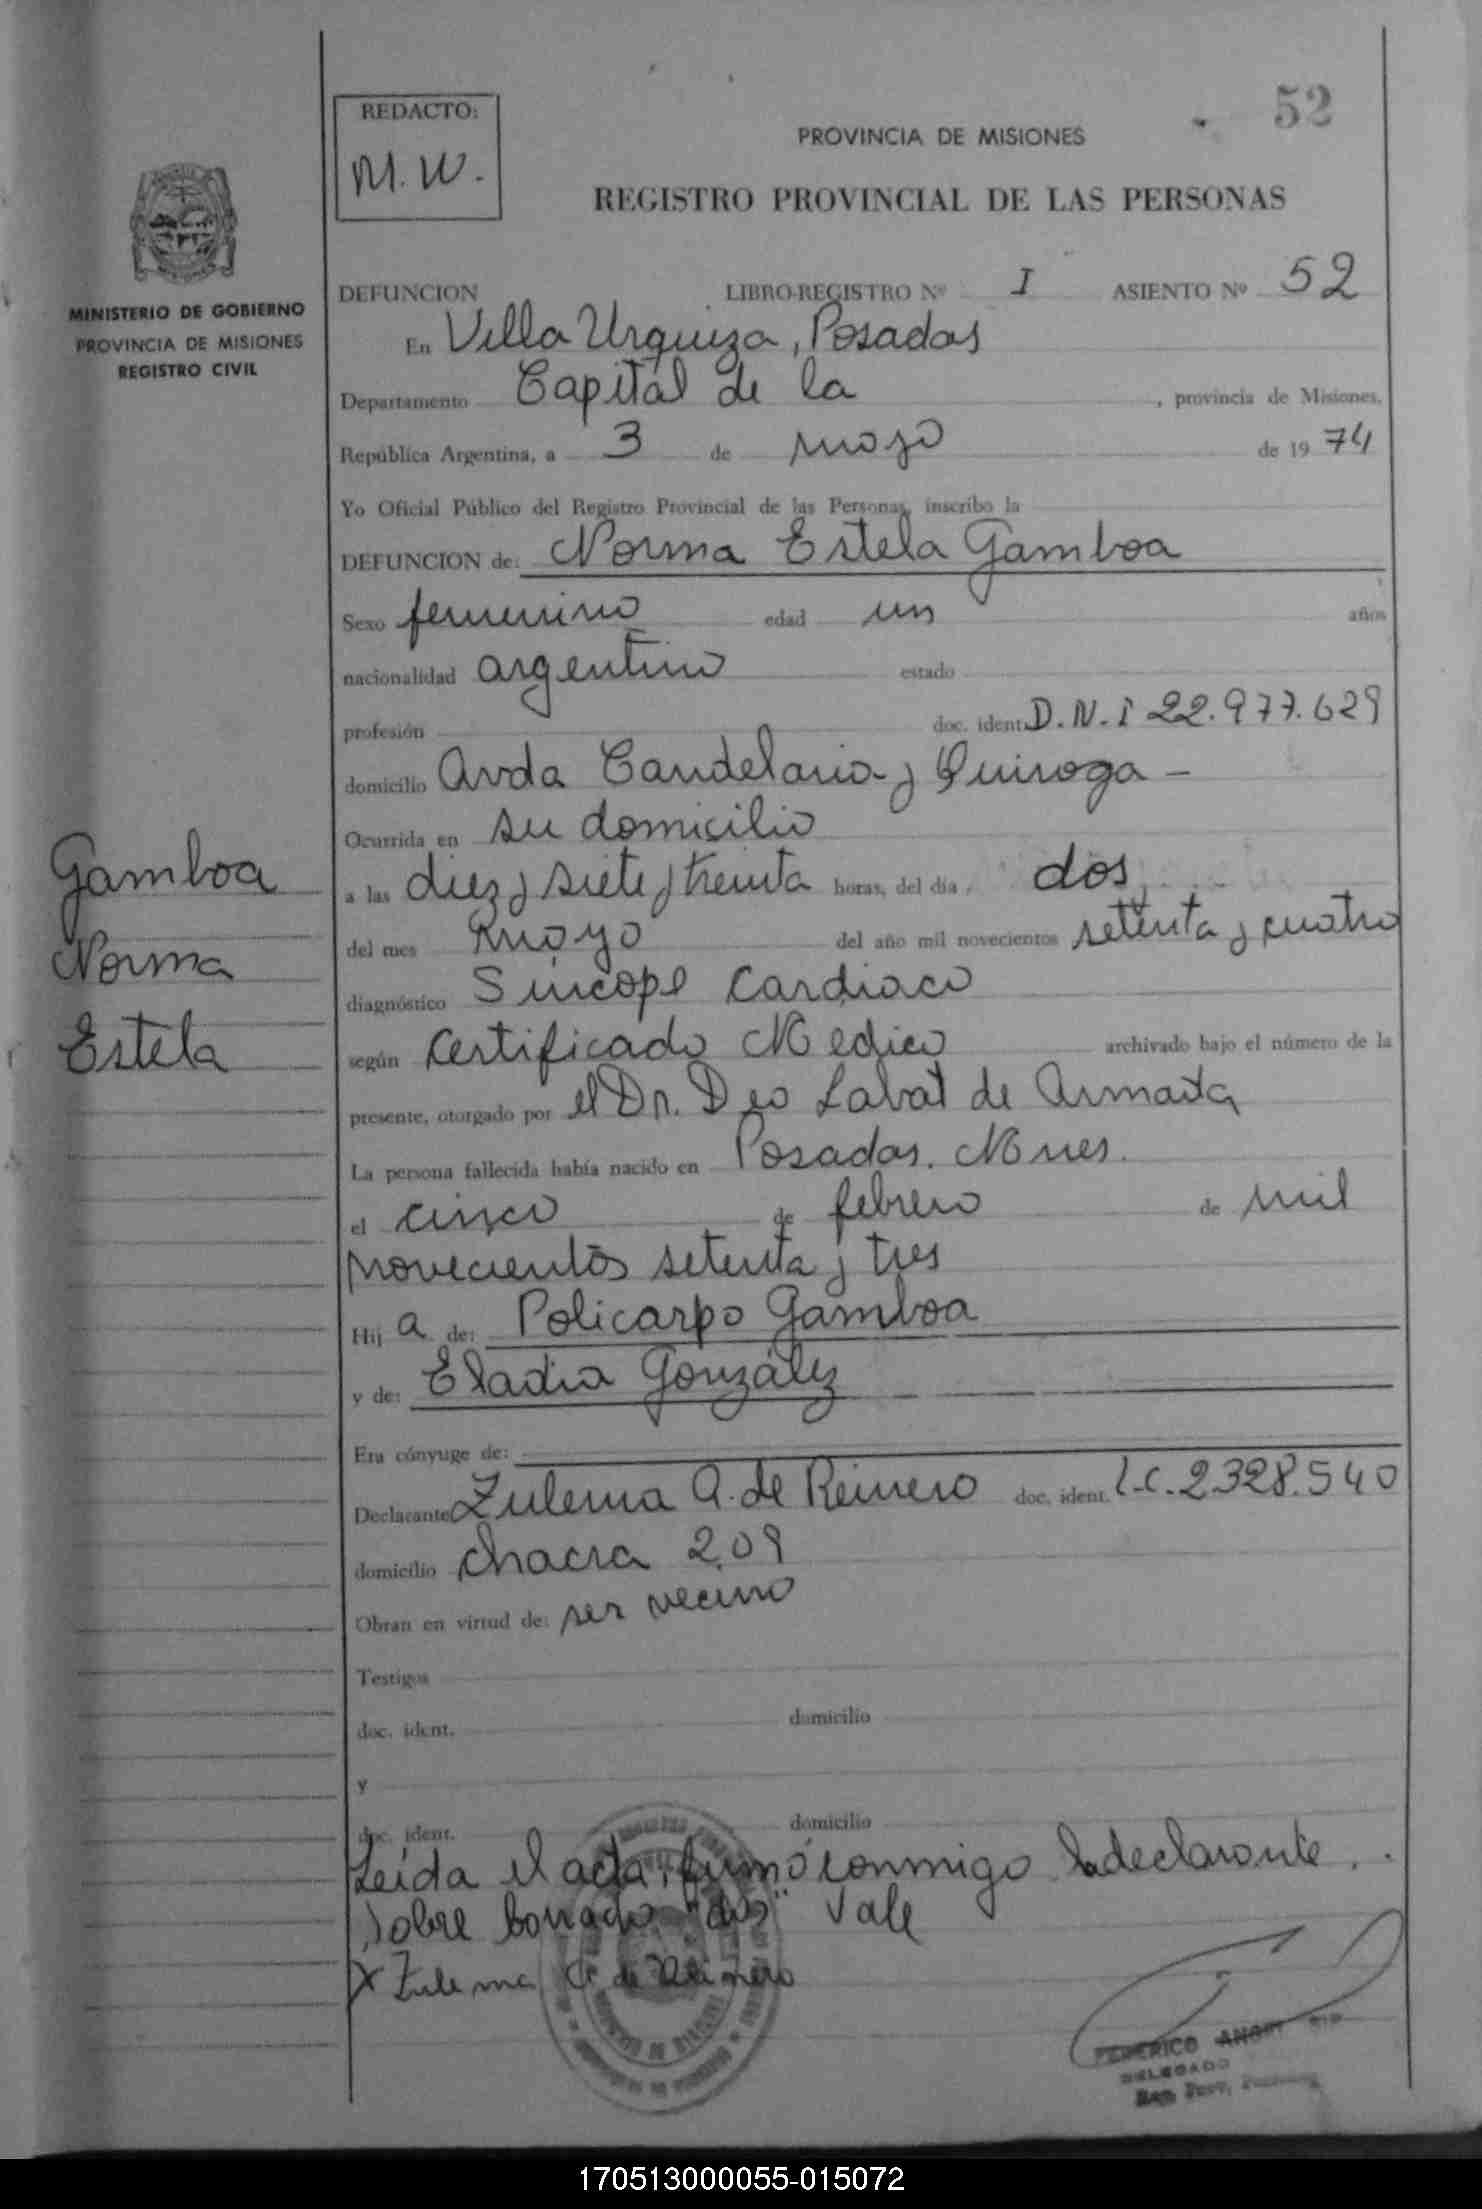 52
REDACTO:
M. W.
PROVINCIA DE MISIONES
REGISTRO PROVINCIAL DE LAS PERSONAS
MINISTERIO DE GOBIERNO
PROVINCIA DE MISIONES
REGISTRO CIVIL
DEFUNCION LIBRO-REGISTRO Nº I ASIENTO Nº 52
En Villa Urquiza, Posadas
Departamento Capital de la , provincia de Misiones,
República Argentina, a 3 de mayo de 1974
Yo Oficial Público del Registro Provincial de las Personas, inscribo la
DEFUNCION de: Norma Estela Gamboa
Sexo femenino edad un años
nacionalidad argentino estado
profesión doc. ident. D.N.I 22.977.629
domicilio Avda Candelaria y Quiroga -
Ocurrida en su domicilio
a las diez y siete y treinta horas, del día dos
del mes mayo del año mil novecientos setenta y cuatro
diagnóstico Síncope Cardiaco
según Certificado Medico archivado bajo el número de la
presente, otorgado por el Dr. Labat de
La persona fallecida había nacido en Posadas. Mnes.
el cinco de febrero de mil
novecientos setenta y tres
Hij a de: Policarpo Gamboa
y de: Eladia González
Era cónyuge de:
Declarante Zulema A. de Reinero doc. ident. L.C. 2328.540
domicilio Chacra 209
Obran en virtud de: ser vecino
Testigos
doc. ident. domicilio
y
doc. ident. domicilio
Leída el acta, firmó conmigo la declarante.
Sobre borrado "dos" Vale
X Zulema de Reinero
Gamboa
Norma
Estela
FEDERICO ANGEL
DELEGADO
170513000055-015072